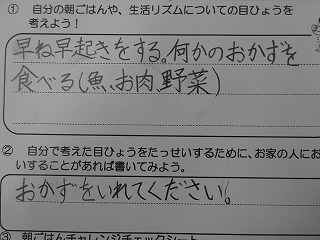 ① 自分の朝ごはんや、生活リズムについての目ひょうを
考えよう！
早ね早起きをする。何かのおかずを
食べる(魚、お肉、野菜)
② 自分で考えた目ひょうをたっせいするために、お家の人にお
いすることがあれば書いてみよう。
おかずをいれてください。
③ 朝ごはんチャレンジチェックシート